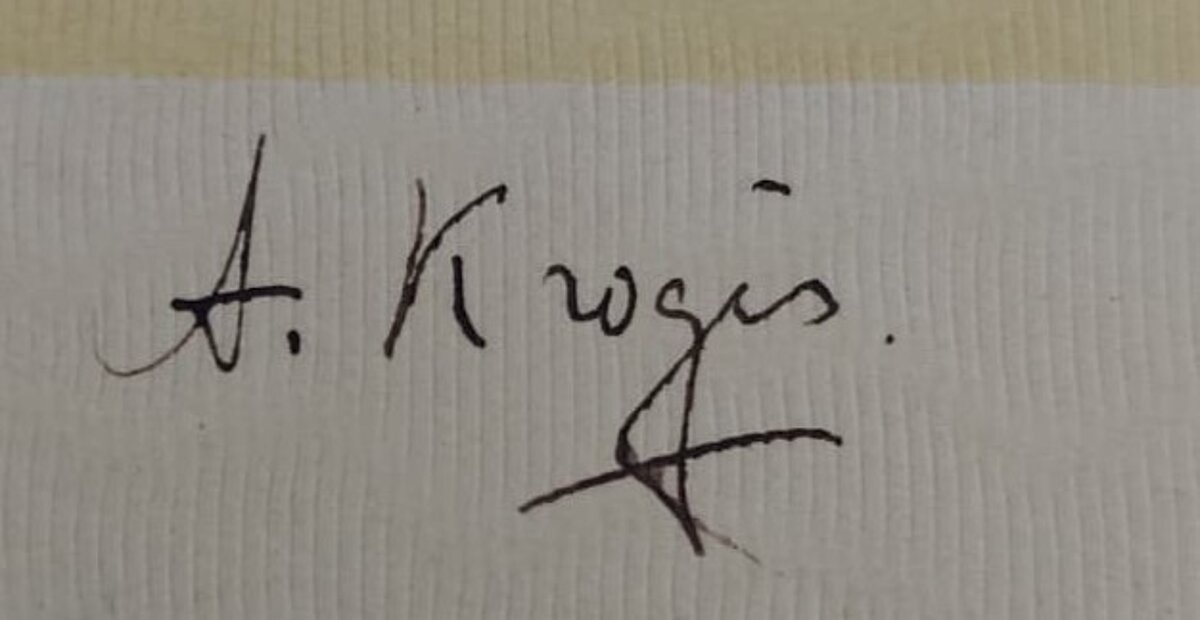 A. Krogis.